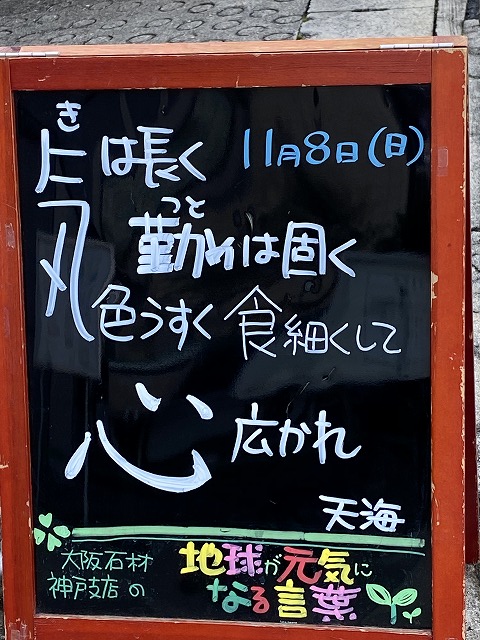 き
気は長く 11月8日(日)
つと
勤めは固く
色うすく 食細くして
心 広かれ
天海
大阪石材
神戸支店の
地球が元気に
なる言葉